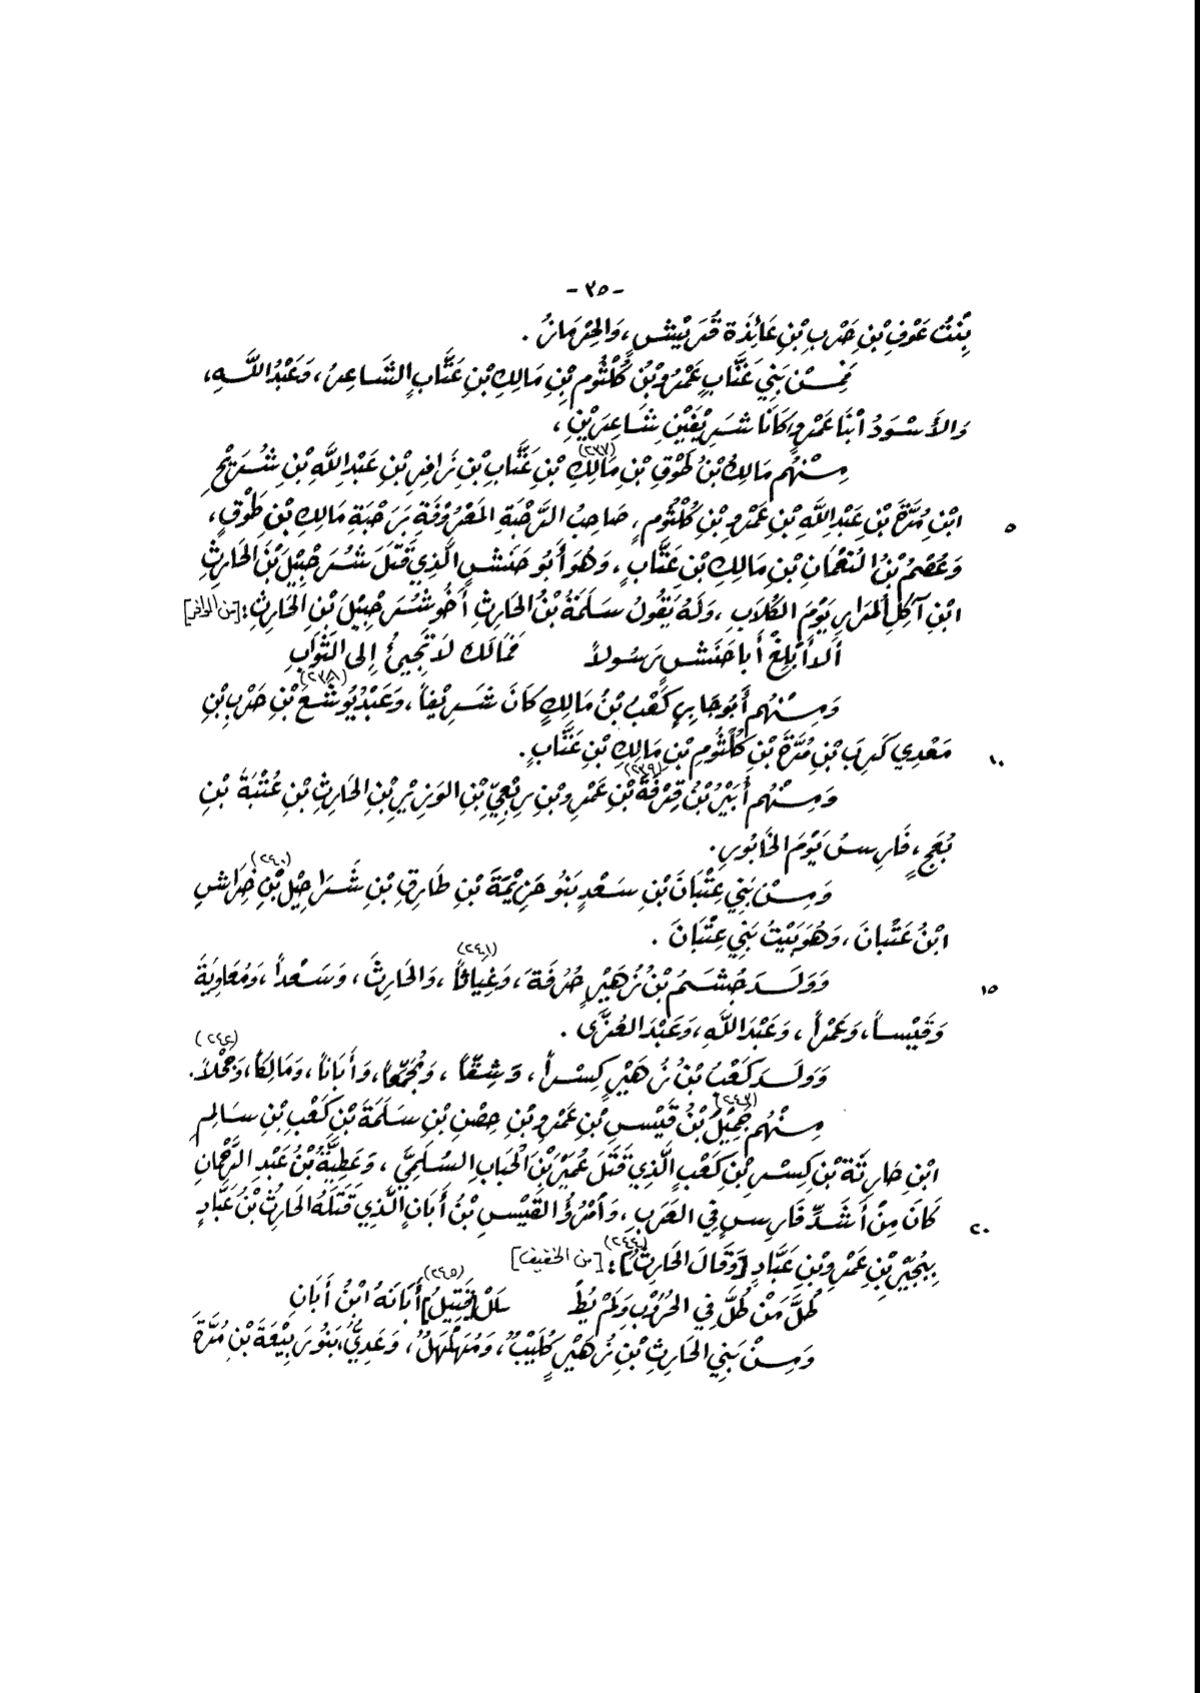 - ٣٥ -
بِنْتُ عَوْفِ بْنِ حَرْبِ بْنِ عَائِذَةَ قُرَيْشٍ، وَالحِرْمَازُ .
فَمِنْ بَنِي عَتَّابٍ عَمْرُو بْنُ كُلْثُومِ بْنِ مَالِكِ بْنِ عَتَّابٍ الشَّاعِرُ، وَعَبْدُ اللَّهِ،
وَالأَسْوَدُ ابْنَا عَمْرٍو، كَانَا شَرِيْفَيْنِ شَاعِرَيْنِ،
مِنْهُم مَالِكُ بْنُ طَوْقِ بْنِ مَالِكِ (٢٣٧) بْنِ عَتَّابِ بْنِ زَافِرِ بْنِ عَبْدِ اللَّهِ بْنِ شُرَيْحِ
ابْنِ مُرَّةَ بْنِ عَبْدِ اللَّهِ بْنِ عَمْرِو بْنِ كُلْثُومٍ، صَاحِبُ الرَّحْبَةِ المَعْرُوْفَةِ بِرَحْبَةِ مَالِكِ بْنِ طَوْقٍ، ٥
وَعُصْمُ بْنُ النُّعْمَانِ بْنِ مَالِكِ بْنِ عَتَّابٍ، وَهُوَ أَبُو حَنَشٍ الَّذِي قَتَلَ شُرَحْبِيْلَ بْنَ الحَارِثِ
ابْنِ آكِلِ المُرَارِ يَوْمَ الكُلَابِ، وَلَهُ يَقُولُ سَلَمَةُ بْنُ الحَارِثِ أَخُو شُرَحْبِيْلَ بْنِ الحَارِثِ: [من الوافر]
أَلاَ أَبْلِغْ أَبا حَنَشٍ رَسُولاً فَمَالَكَ لاَ تَجِيءُ إِلى الثَّوَابِ
وَمِنْهُم أَبُو جَابِرٍ كَعْبُ بْنُ مَالِكٍ كَانَ شَرِيْفاً، وَعَبْدُ يُوشَعَ (٢٣٨) بْنِ حَرْبِ بْنِ
مَعْدِي كَرِبَ بْنِ مُرَّةَ بْنِ كُلْثُومِ بْنِ مَالِكِ بْنِ عَتَّابٍ. ١٠
وَمِنْهُم أُبَيْرُ بْنُ قِرْفَةَ (٢٣٩) بْنِ عَمْرِو بْنِ رِبْعِيِّ بْنِ الوَزِيْرِ بْنِ الحَارِثِ بْنِ عُتْبَةَ بْنِ
بُعَجٍ، فَارِسُ يَوْمَ الخَابُورِ.
وَمِنْ بَنِي عِتْبَانَ بْنِ سَعْدٍ بَنُو حَزِيْمَةَ بْنِ طَارِقِ بْنِ شَرَاحِيْلَ بْنِ خِرَاشِ (٢٤٠)
ابْنُ عَتْبَانَ، وَهُوَ بَيْتُ بَنِي عِتْبَانَ .
وَوَلَدَ جُشَمُ بْنُ زُهَيْرٍ حُرْفَةَ، وَغِيَاثاً (٢٤١)، وَالحَارِثَ، وَسَعْداً، وَمُعَاوِيَةَ ١٥
وَقَيْساً، وَعَمْراً، وَعَبْدَ اللَّهِ، وَعَبْدَ العُزَّى .
وَوَلَدَ كَعْبُ بْنُ زُهَيْرٍ كِسْراً، وَشِقّاً، وَمُجَمِّعاً، وَأَبَاناً، وَمَالِكاً، وَجَحْلاً. (٢٤٢)
مِنْهُم جَمِيْلُ (٢٤٣) بْنُ قَيْسِ بْنِ عَمْرِو بْنِ حِصْنِ بْنِ سَلَمَةَ بْنِ كَعْبِ بْنِ سَالِمِ
ابْنِ حَارِثَةَ بْنِ كِسْرِ بْنِ كَعْبٍ الَّذِي قَتَلَ عُمَيْرَ بْنَ الحُبَابِ السُّلَمِيَّ، وَعَطِيَّةُ بْنُ عَبْدِ الرَّحْمَانِ
كَانَ مِنْ أَشَدِّ فَارِسٍ فِي العَرَبِ، وَامْرُؤُ القَيْسِ بْنُ أَبَانٍ الَّذِي قَتَلَهُ الحَارِثُ بْنُ عَبَّادٍ ٢٠
بِبُجَيْرِ بْنِ عَمْرِو بْنِ عَبَّادٍ [وَقَالَ الحَارِثُ] (٢٤٤): [من الخفيف]
طُلَّ مَنْ طُلَّ فِي الحُرُوْبِ وَلَمْ يُطْ لَلْ [قَتِيْلٌ] (٢٤٥) أَبَانَهُ ابْنُ أَبَانِ
وَمِنْ بَنِي الحَارِثِ بْنِ زُهَيْرٍ كُلَيْبٌ، وَمُهَلْهِلٌ، وَعَدِيٌّ، بَنُو رَبِيْعَةَ بْنِ مُرَّةَ